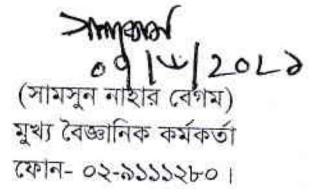 ০৭/৮/২০১৯
(সামসুন নাহার বেগম)
মুখ্য বৈজ্ঞানিক কর্মকর্তা
ফোন- ০২-৯১১১২৮০।